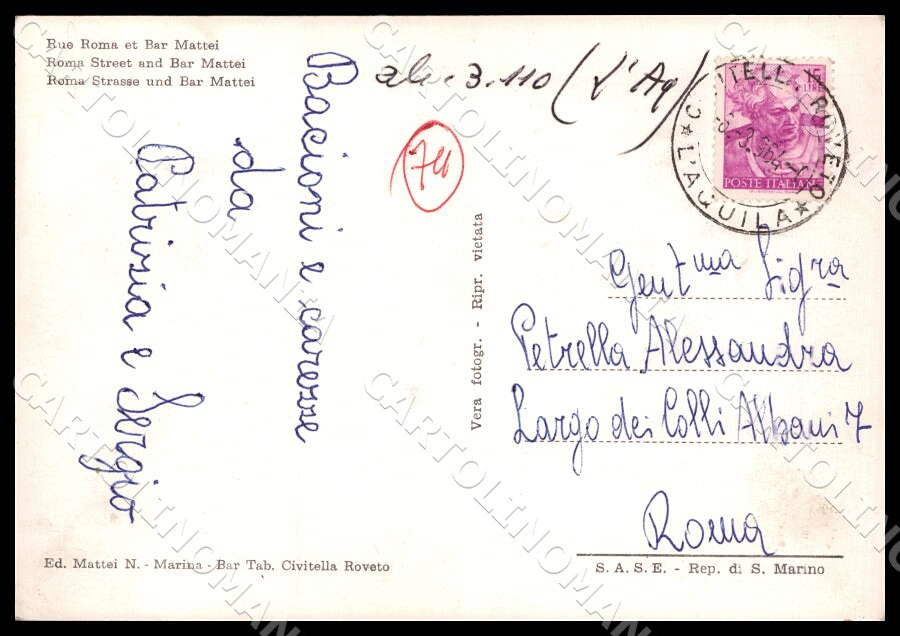 Rue Roma et Bar Mattei
Roma Street and Bar Mattei
Roma Strasse und Bar Mattei
Bacioni e carezze
da
Patrizia e Sergio
ab. 3.110 (L'Aq)
74
15
LIRE
POSTE ITALIANE
CIVITELLA ROVETO
★ L'AQUILA ★
Vera fotogr. - Ripr. vietata
Gent.ma Sig.ra
Petrella Alessandra
Largo dei Colli Albani 7
Roma
Ed. Mattei N. - Marina - Bar Tab. Civitella Roveto
S. A. S. E. - Rep. di S. Marino
CARTOLINOMANIA